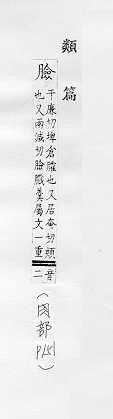 類篇
臉
千廉切埤倉臛也又居奄切頰
也又兩減切臉羹屬文一重
音
二
(肉部 P151)